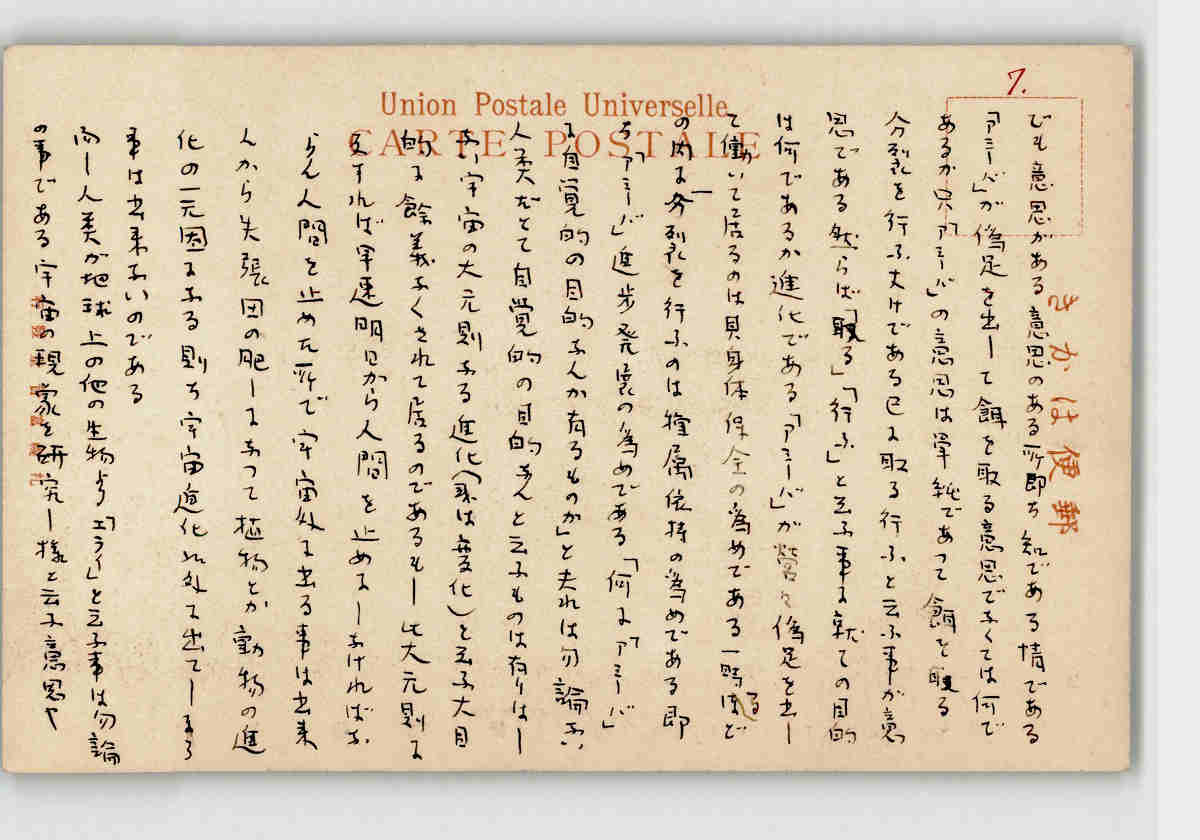 7.
Union Postale Universelle
CARTE POSTALE
きかは便郵
でも意思がある意思のある所即ち知である情である
「アミーバ」が偽足を出して餌を取る意思でなくては何で
あるか只「アミーバ」の意思は単純であって餌を取る
分裂を行ふ丈けである已に取る行ふと云ふ事が意
思である然らば「取る」「行ふ」と云ふ事に就ての目的
は何であるか進化である「アミーバ」が営々偽足を出し
て働いて居るのは其身体保全の為めである一時るほど
の内に分裂を行ふのは種属依持の為めである即
ち「アミーバ」進歩発展の為めである「何に「アミーバ」
に自覚的の目的なんか有るものか」と夫れは勿論ない
人類だとて自覚的の目的なんと云ふものは有りはし
ない宇宙の大元則なる進化(又は変化)と云ふ大目
的に余義なくされて居るのであるもし此大元則に
反すれば早速明日から人間を止めるしなければな
らん人間を止めた所で宇宙外に出る事は出来
んから矢張田の肥しになつて植物とか動物の進
化の一元因になる則ち宇宙進化外に出てしまう
事は出来ないのである
而し人類が地球上の他の生物より「エライ」と云ふ事は勿論
の事である宇宙の現象を研究し様と云ふ意思や